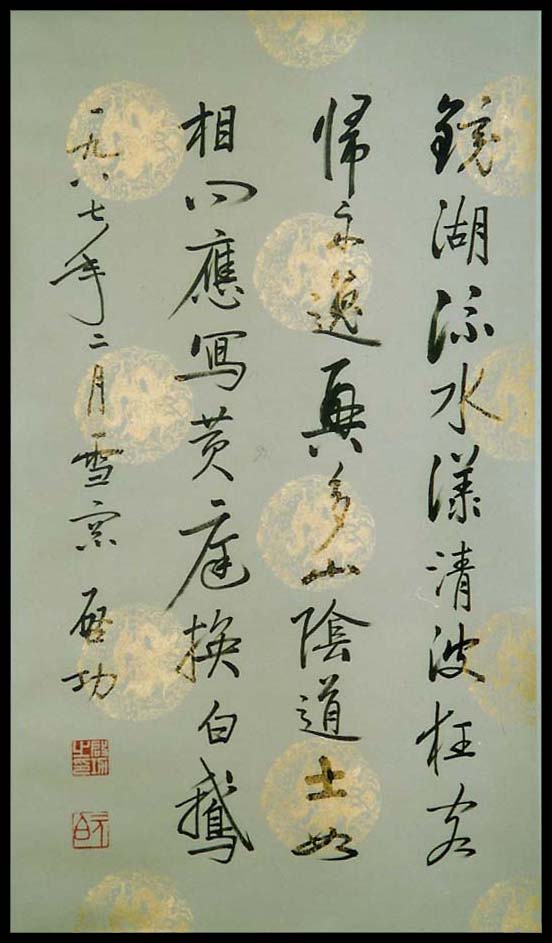 鏡湖流水漾清波狂客
歸来逸興多山陰道士如
相问應寫黄庭換白鵝
一九八七年二月雪窗 啓功
啓功之印
元白